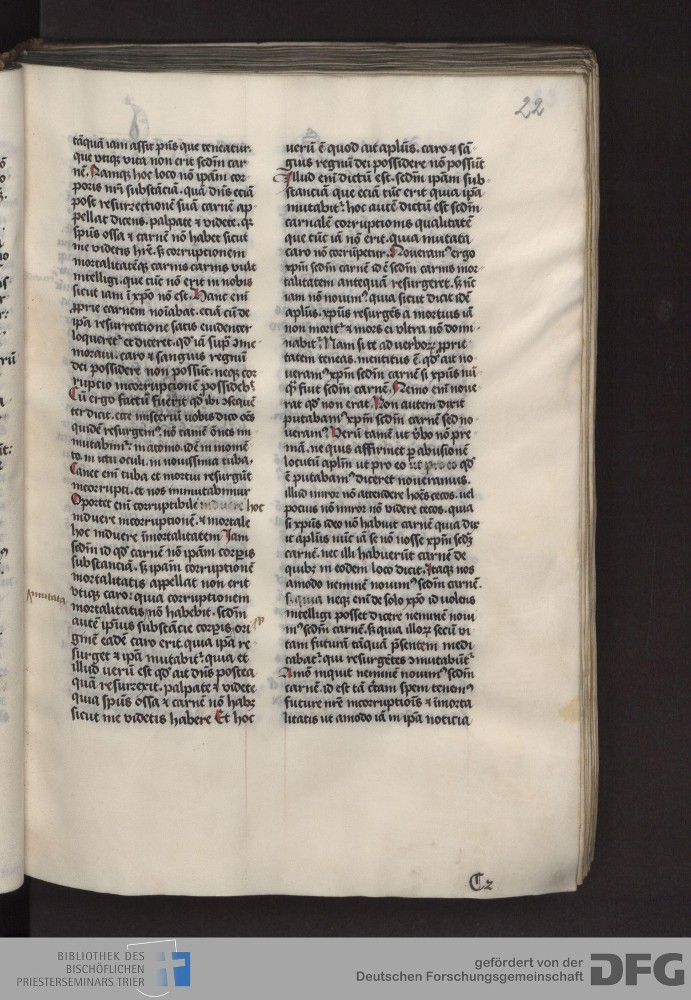 22
tāquā iam assit pn̄s que teneatur.
que vtiqȝ vita non erit scd̄m car
nē. Namqȝ hoc loco nō ip̄am cor
poris nr̄i substātiā. quā dn̄s eciā
post resurrectionē suā carnē ap
pellat dicens. palpate ⁊ videte. qꝛ
sp̄us ossa ⁊ carnē nō habet sicut
me videtis hr̄e. sȝ corruptionem
mortalitatēqȝ carnis carnis vult
intelligi. que tūc nō erit in nobis
sicut iam ī xp̄o nō est. Hanc enī
ꝓprie carnem noīabat. eciā cū de
ip̄a resurrectione satis euidenter
loqueret᷑ et diceret. qd̓ iā sup̄ ↄme
moraui. caro ⁊ sanguis regnū
dei possidere non possūt. neqȝ cor
ruptio incorruptionē possideb᷑
Cū ergo factū fuerit qd̓ ibi ↄsequē
ter dicit. ecce misteriū vobis dico oēs
quidē resurgem᷒. nō tamē ōnes im
mutabim᷒. in atomo. id ē in momē
to. in ictu oculi. in nouissima tuba.
Canet enī tuba et mortui resurgūt
incorrupti. et nos inmutabimur
Oportet enī corruptibile induere hoc
induere incorruptionē. ⁊ mortale
hoc induere īmortalitatem Iam
scd̄m id qd̓ carnē nō ipām corꝑis
substanciā. sȝ ip̄am corruptionē
mortalitatis appellat non erit
vtiqȝ caro. quia corruptionem
Amutata
mortalitatis nō habebit. scd̄m
autē ip̄ius substācie corꝑis ori
ginē eadē caro erit. quia ip̄a re
surget ⁊ ip̄a mutabit᷑. quia et
illud verū est qd̓ ait dn̄s postea
quā resurexit. palpate ⁊ videte
quia sp̄us ossa ⁊ carnē nō habȝ
sicut me videtis habere Et hoc
verū ē quod ait apl̄us. caro ⁊ sā
guis regnū dei possidere nō possūt
Illud enī dictū est. scd̄m ip̄am sub
stanciā que eciā tūc erit quia ip̄a
mutabit᷑. hoc autē dictū est scd̄m
carnalē corruptionis qualitatē
que tūc iā nō erit. quia mutata
caro nō corrūpetur. Noueram᷒ ergo
xp̄m scd̄m carnē id ē scd̄m carnis mor
talitatem antequā resurgeret. sȝ nc̄
iam nō nouim᷒. quia sicut dicit idē
apl̄us. xp̄us resurgēs a mortuis iā
non morit᷑ ⁊ mors ei vltra nō domi
nabit᷑. Nam si te ad verboꝝ ꝓprie
tatem teneas. mentitus ē. qd̓ ait no
ueram᷒ xp̄m scd̄m carnē si xp̄us nū
qȝ fuit scd̄m carnē. Nemo enī noue
rat qd̓ non erat. Non autem dixit
putabam᷒ xp̄m scd̄m carnē sed no
ueram᷒. Verū tamē ut v̓bo nō pre
mā. ne quis affirmet ꝑ abusionē
locutū apl̄m ut pro eo ut pro eo qd̓
ē putabam᷒ diceret noueramus.
illud miror nō attendere hoīes cecos. uel
pocius nō miror nō videre cecos. quia
si xp̄us ideo nō habuit carnē quia dix
it apl̄us nūc iā se nō nosse xp̄m scd̄ȝ
carnē. nec illi habuerūt carnē de
quibȝ in eodem loco dicit. Itaqȝ nos
amodo neminē nouim᷒ scd̄m carnē.
sȝ quia neqȝ enī de solo xp̄o id uolens
intelligi posset dicere neminē noui
m᷒ scd̄m carnē. sȝ quia illoꝝ secū vi
tam futurā tāquā p̄sentem medi
tabat᷑. qui resurgētes ↄmutabūt᷑
Amō inquit neminē nouim᷒ scd̄m
carnē. id est tā c̄tam spem tenem᷒
future nr̄e incorruptioīs ⁊ īmorta
litatis ut amodo iā in ip̄a noticia
C2
BIBLIOTHEK DES
BISCHÖFLICHEN
PRIESTERSEMINARS TRIER
gefördert von der
Deutschen Forschungsgemeinschaft
DFG